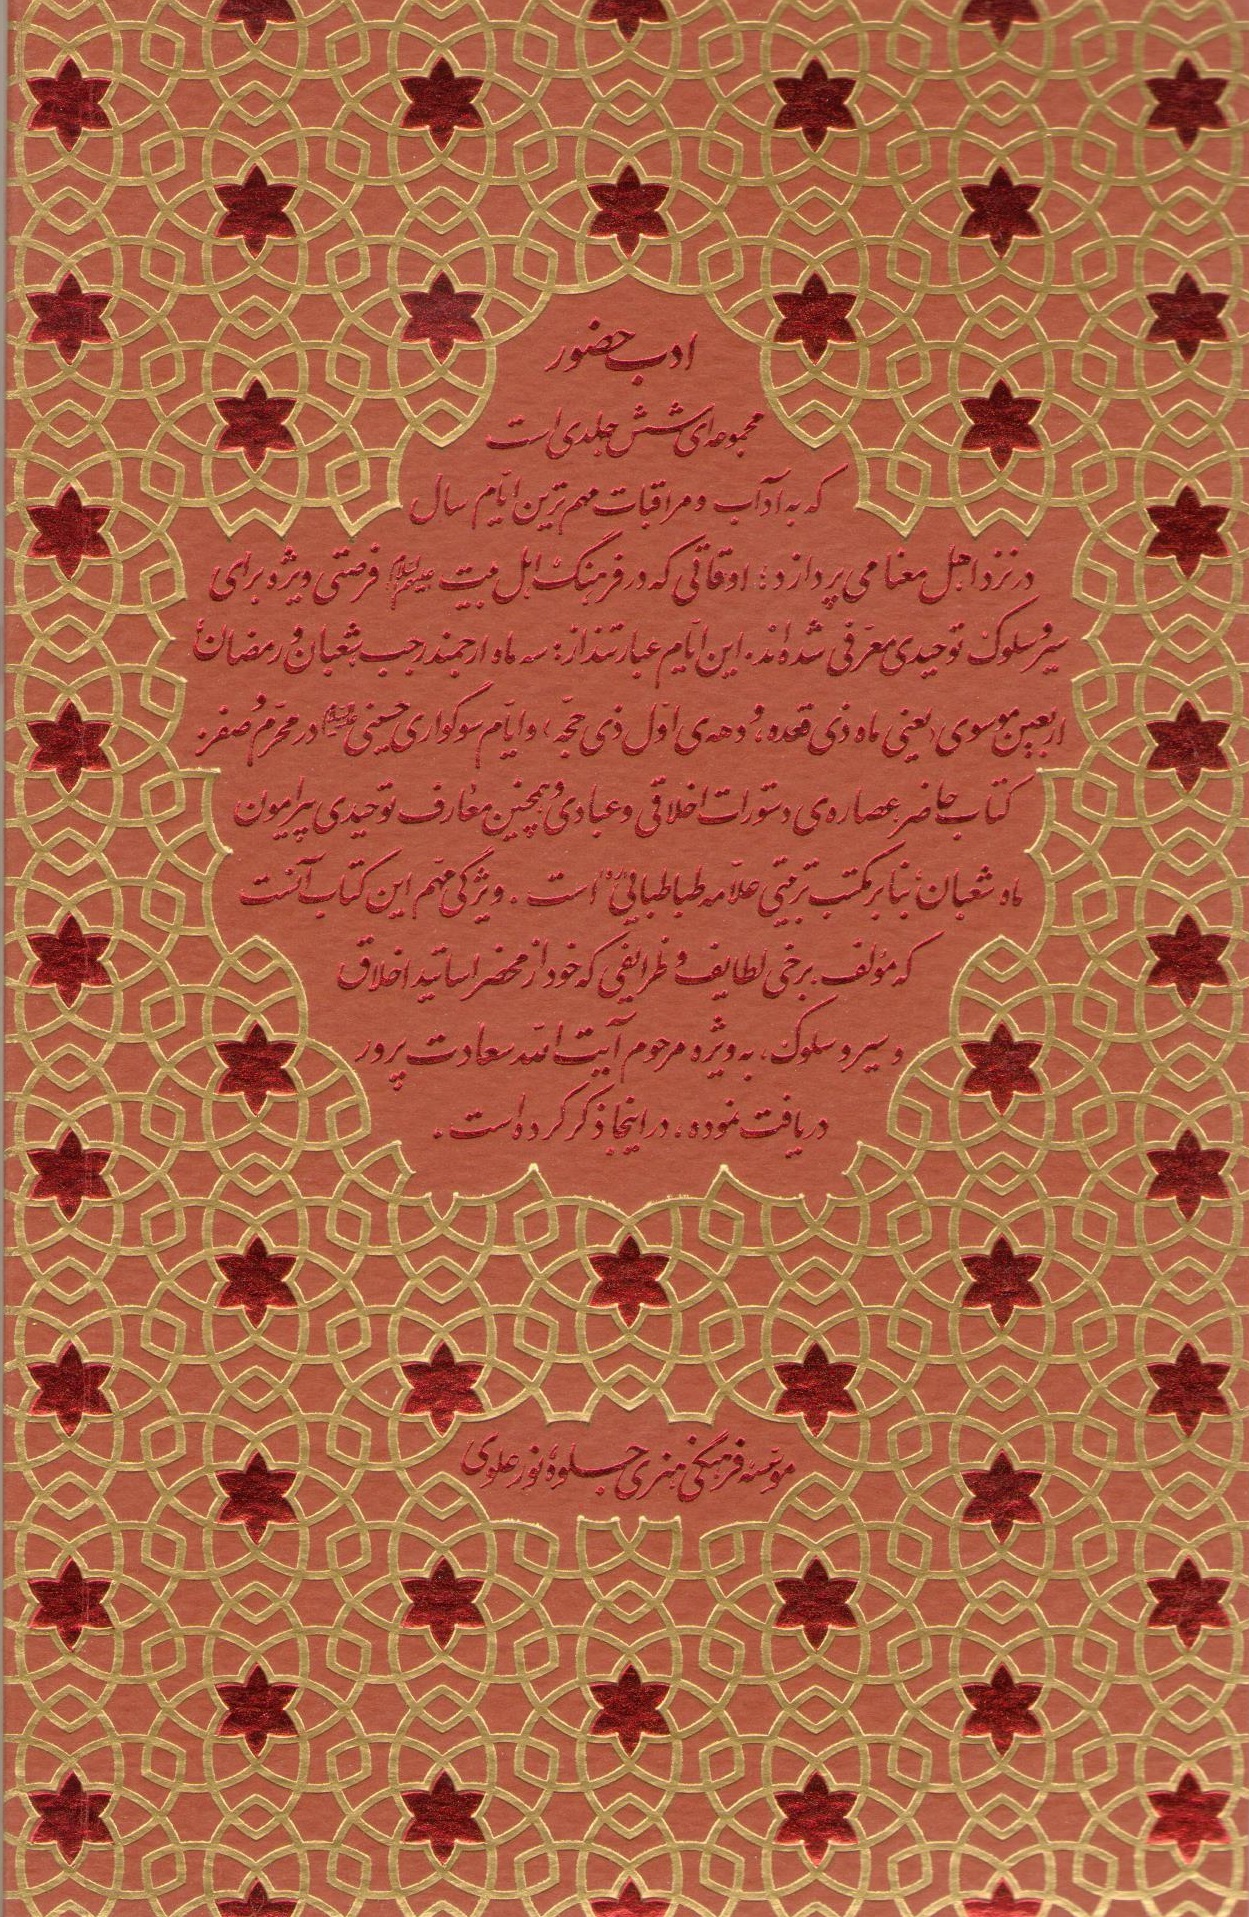 ادب حضور
مجموعه‌ای شش جلدی است
که به آداب و مراقبات مهم‌ترین ایّام سال
در نزد اهل معنا می‌پردازد؛ اوقاتی که در فرهنگ اهل بیت علیهم السلام فرصتی ویژه برای
سیر و سلوک توحیدی معرّفی شده‌اند. این ایّام عبارتند از: سه ماه ارجمند رجب، شعبان و رمضان؛
اربعین موسوی (یعنی ماه ذی قعده، و دهه‌ی اوّل ذی حجّه)؛ و ایّام سوگواری حسینی علیه السلام در محرّم و صفر.
کتاب حاضر عصاره‌ی دستورات اخلاقی و عبادی و همچنین معارف توحیدی پیرامون
ماه شعبان، بنا بر مکتب تربیتی علاّمه طباطبایی (ره) است. ویژگی مهّم این کتاب آنست
که مؤلف برخی لطایف و ظرایفی که خود از محضر اساتید اخلاق
و سیر و سلوک، به ویژه مرحوم آیت الله سعادت پرور
دریافت نموده، در اینجا ذکر کرده است.
مؤسّسه فرهنگی هنری جلوهٔ نور علوی